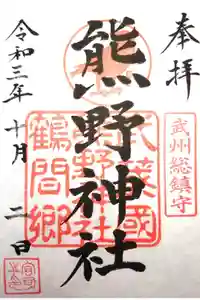 奉拝
武州総鎮守
熊野神社
武蔵國
熊野神社
鶴間郷
令和三年十月二日